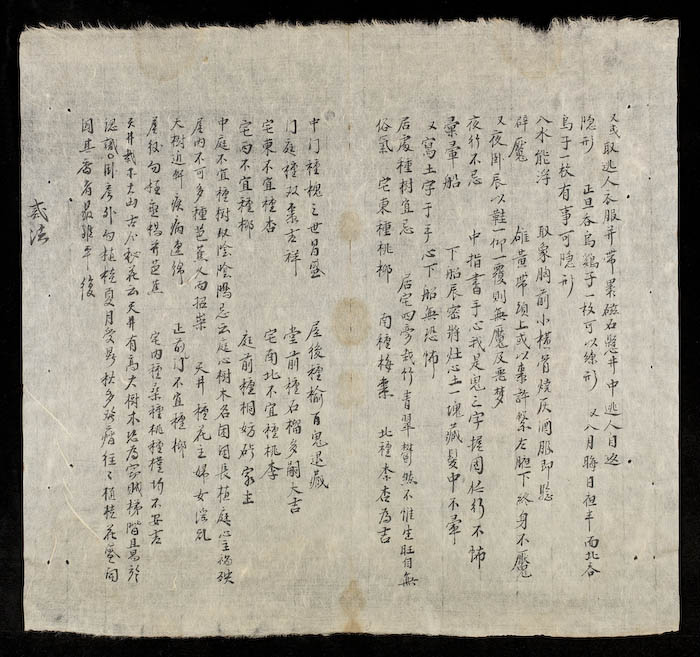 又或取逃人衣服并帶果磁石懸井中逃人自返
隐形 正旦吞烏鷄子一枚可以練形 又八月晦日夜半面北吞
烏子一枚有事可隐形
入水能浮 取象胸前小橫骨燒灰酒服即
辟魘 雄黃帶頭上或以棗許繫左腋下終身不魘
又夜卧辰以鞋一仰一覆則無魘及惡夢
夜行不忌 中指書手心我是鬼三字握固夜行不怖
暈船 下船辰密將灶心土一塊藏髮中不暈
又寫土字于手心下船無恐怖
居處種樹宜忌 居宅四旁栽竹青翠鬱然不惟生旺自無
俗氣 宅東種桃柳 南種梅棗 北種柰杏為吉
中门種槐三世昌盛 屋後種榆百鬼退藏
门庭種双棗吉祥 堂前種石榴多嗣大吉
宅東不宜種杏 宅南北不宜種桃李
宅西不宜種柳 庭前種桐妨碍家主
中庭不宜種樹取陰陰陽忌云庭心樹木名困困長植庭心主禍殃
屋内不可多種芭蕉久而招祟 天井種花主婦女淫乱
大樹近軒疾病連綿 正前门不宜種柳
屋後勿種 芭蕉 宅内種桑種桃種槿 不安吉
天井栽木大山古 秘花云天井有高大樹木恐為家賊梯階且易於
認識 卧房外勿植 夏月 多 瘡往々植桂花 間
因其香有最 平後
式法